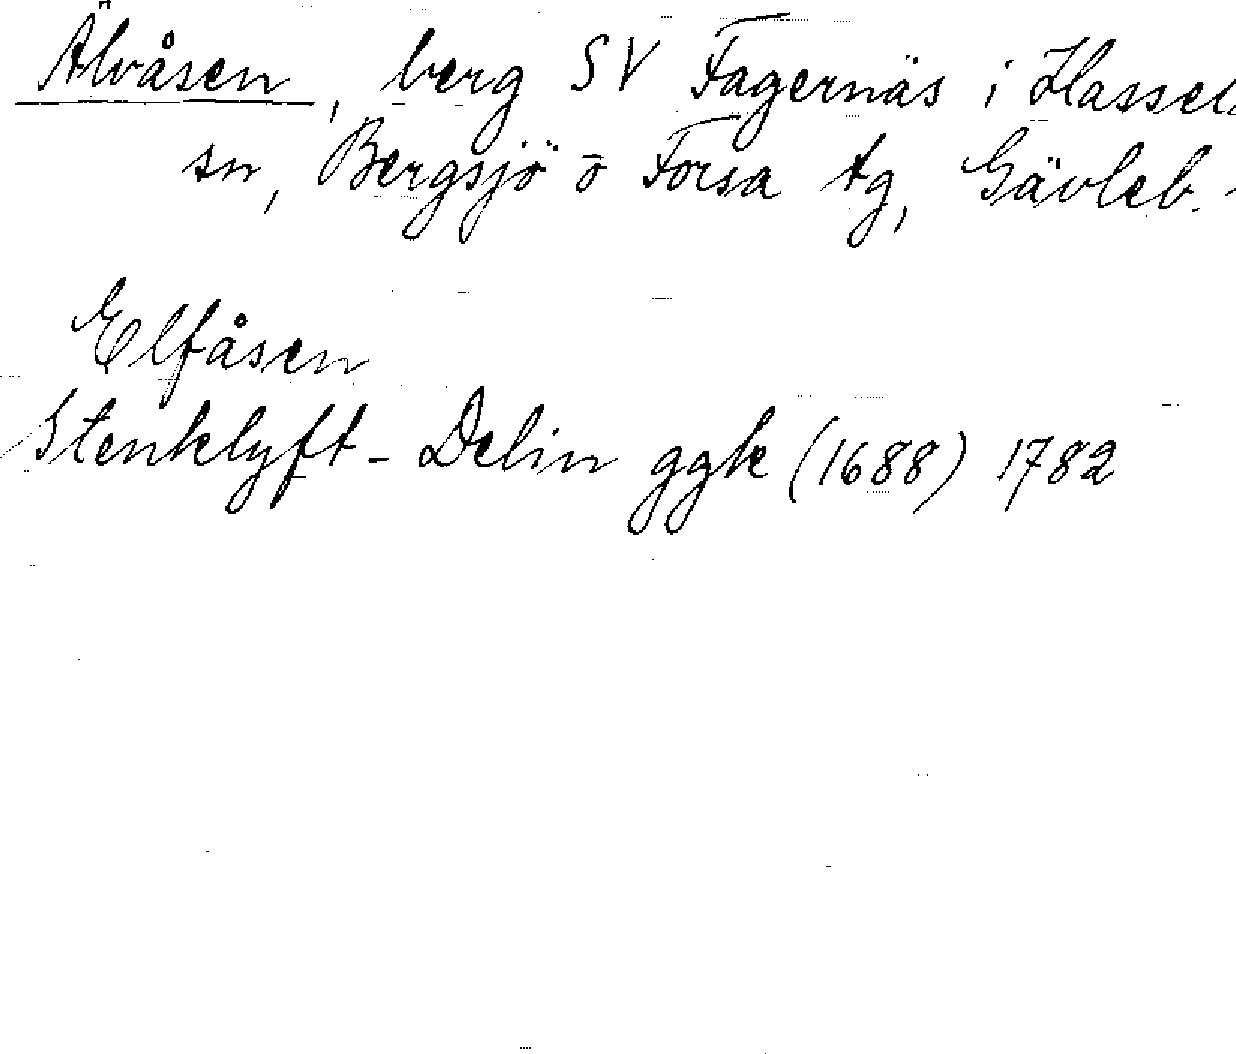 Älvåsen, berg SV Fagernäs i Hassel
sn, Bergsjö o Forsa tg, Gävleb.
Elfåsen
Stenklyft - Delin ggk (1688) 1782